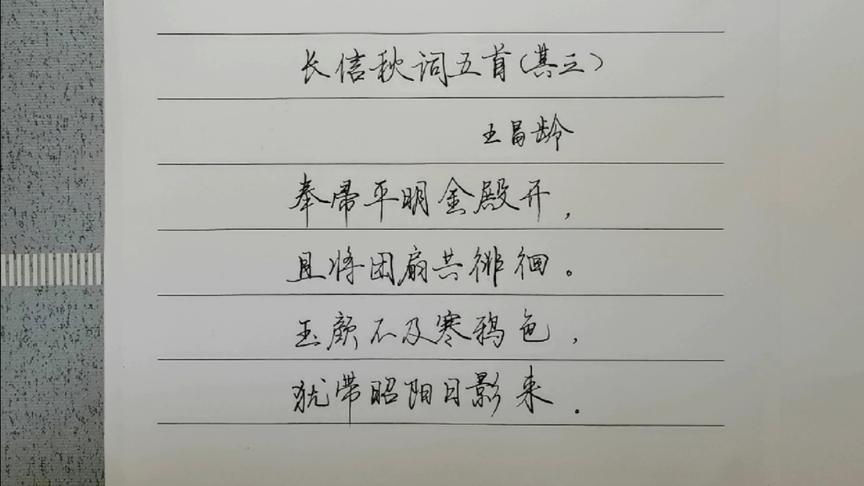 长信秋词五首(其三)
王昌龄
奉帚平明金殿开,
且将团扇共徘徊。
玉颜不及寒鸦色,
犹带昭阳日影来.